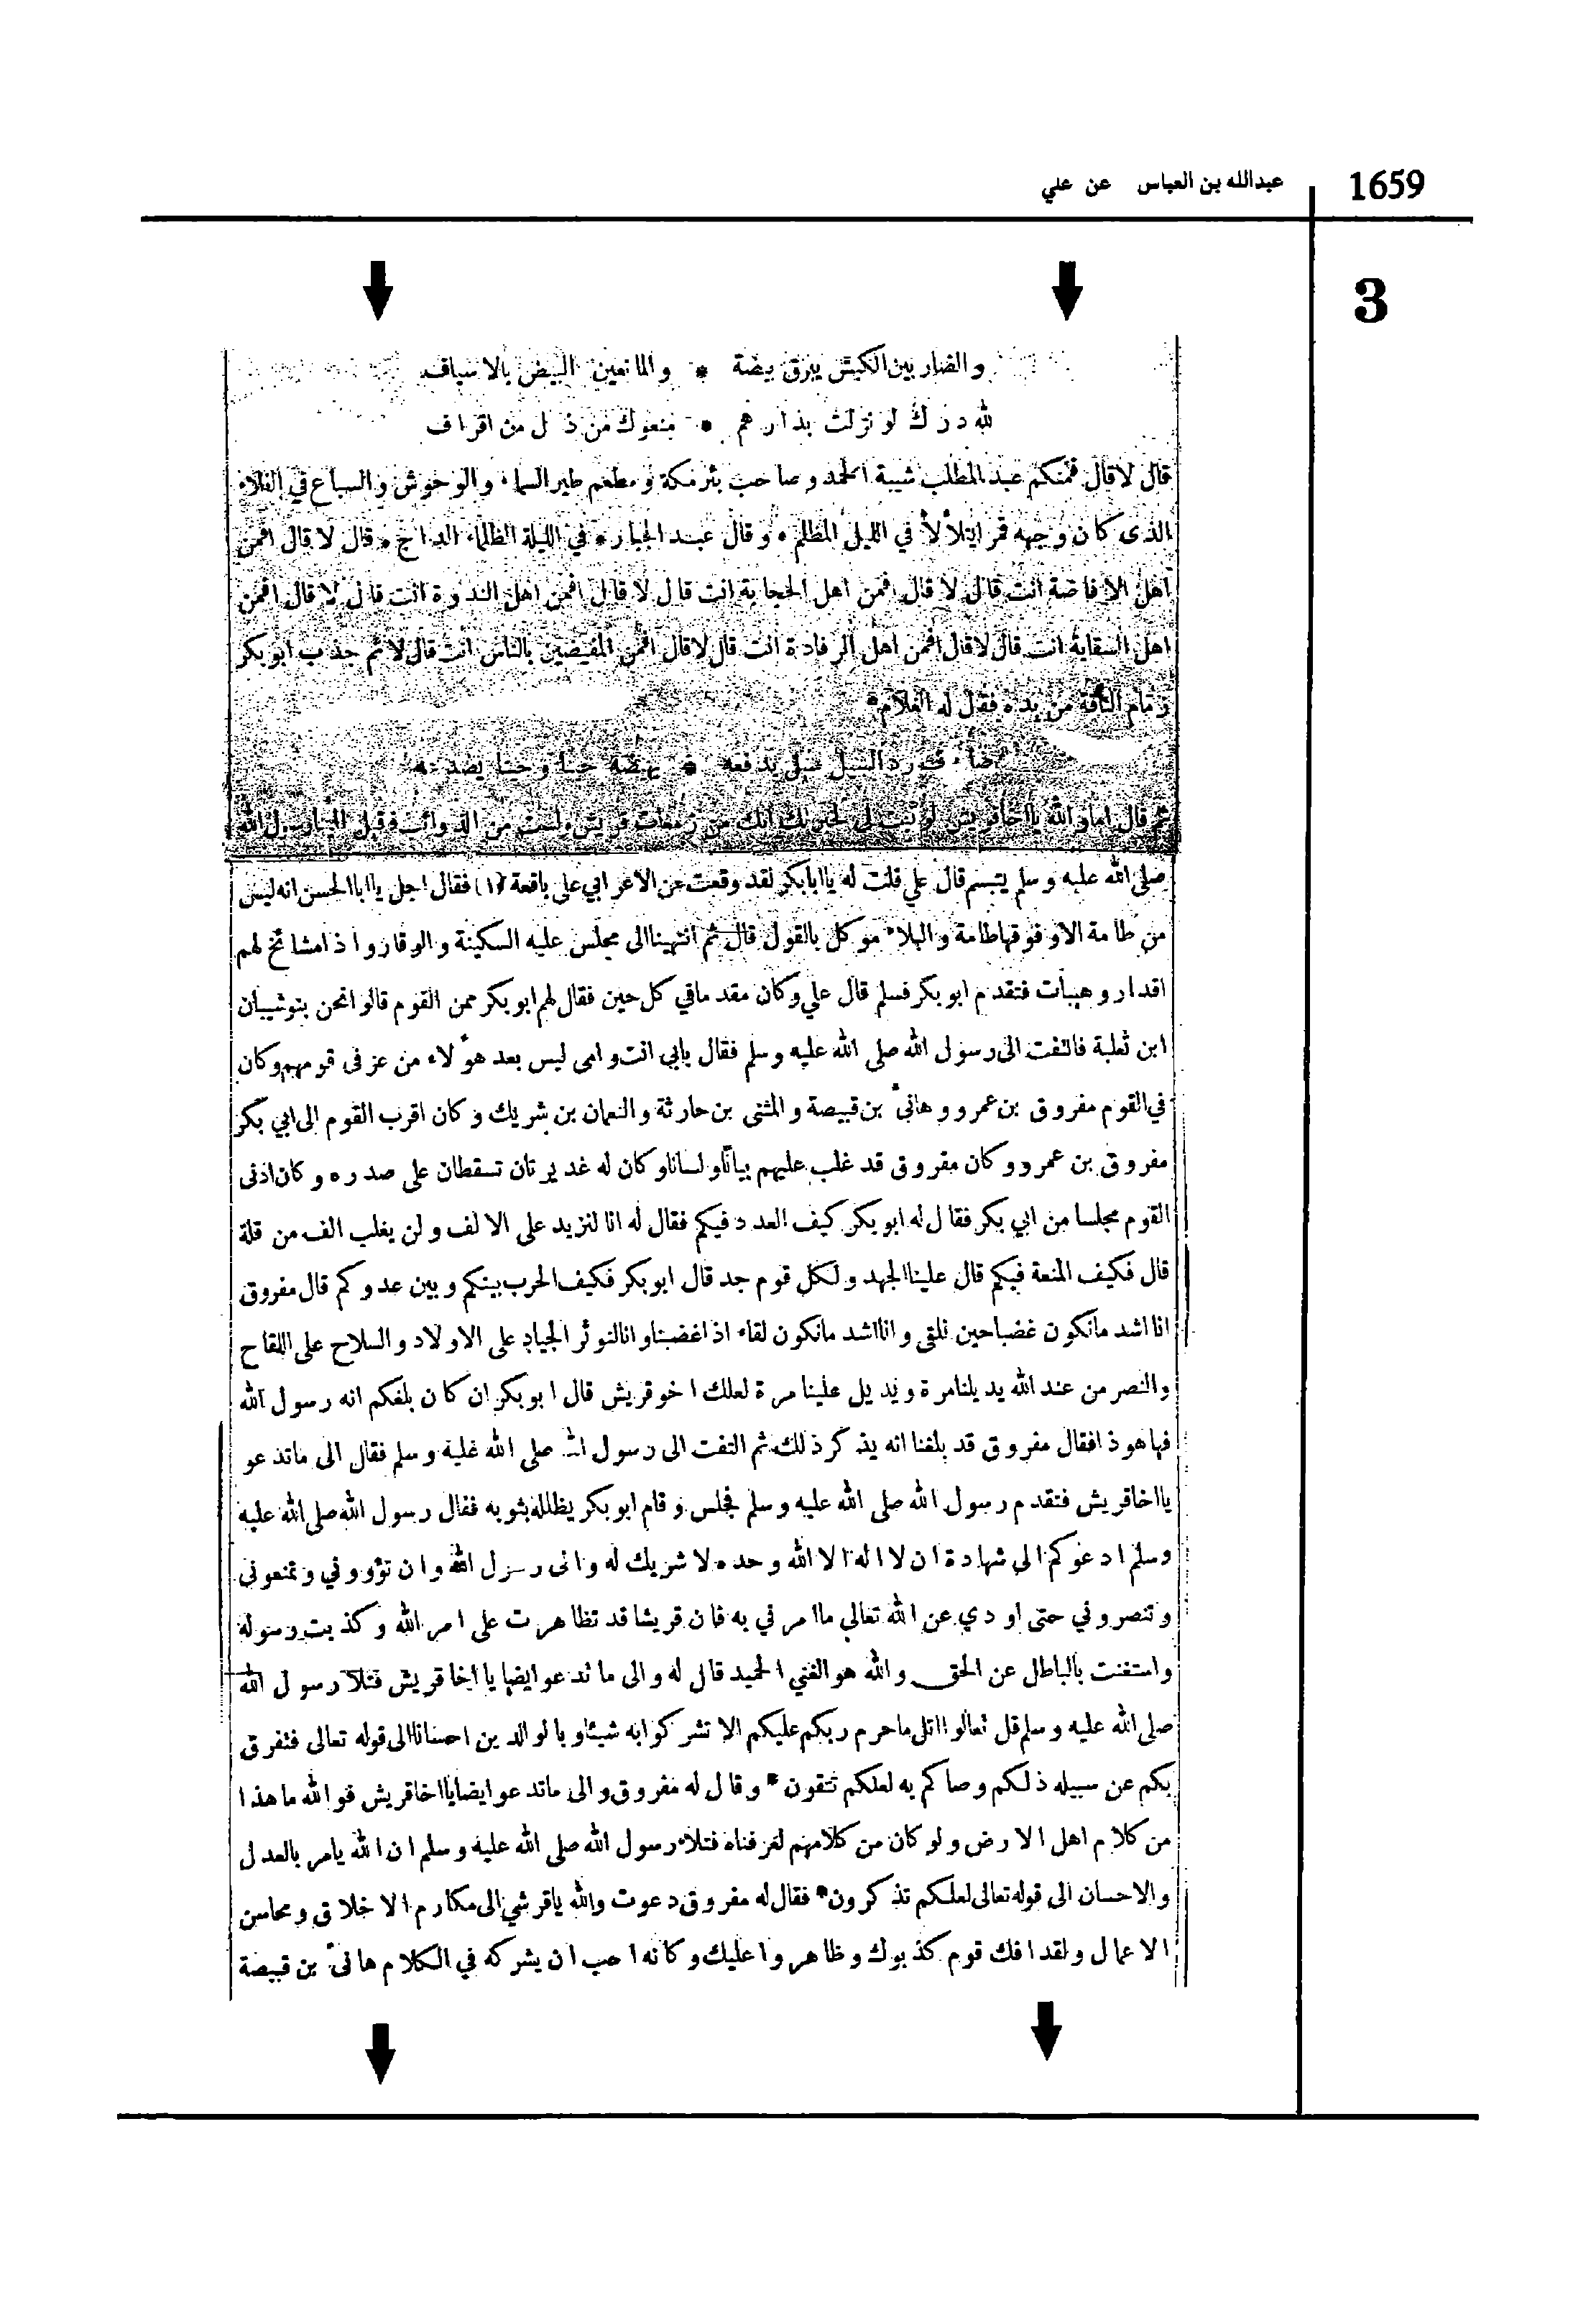 1659
عبدالله بن العباس عن علي
3
والضاربين الكبش يبرق بيضة * والمانعين البيض بالاسياف
لله درك لو نزلت بدارهم * منعوك من ذل من اقراف
قال لا قال فمنكم عبد المطلب شيبة الحمد وصاحب بئر مكة ومطعم طير السماء والوحوش والسباع في الفلاء
الذى كان وجهه قمر ايتلألأ في الليل المظلم * وقال عبد الجبار * في الليلة الظلماء الداج * قال لا قال افمن
اهل الافاضة انت قال لا قال افمن اهل الحجابة انت قال لا قال افمن اهل الندوة انت قال لا قال افمن
اهل السقاية انت قال لا قال افمن اهل الرفادة انت قال لا قال افمن المفيضين بالناس انت قال لا ثم جذب ابو بكر
زمام الناقة من يده فقال له الغلام *
السيل يدفعه * يهضه حينا وحينا يصدعه
ثم قال اما والله يا اخا قريش لو ثبت لى لخبرتك انك من زمعات قريش ولست من الذوائب فاقبل الينا رسول الله
صلى الله عليه وسلم يتبسم قال علي قلت له يا ابا بكر لقد وقعت من الاعرابي على باقعة (١) فقال اجل يا ابا الحسن انه ليس
من طامة الا و فوقها طامة والبلاء موكل بالقول قال ثم انتهينا الى مجلس عليه السكينة والوقار و اذا مشائخ لهم
اقدار و هيبات فتقدم ابو بكر فسلم قال علي وكان مقدما في كل حين فقال لهم ابو بكر ممن القوم قالوا نحن بنو شيبان
ابن ثعلبة فالتفت الى رسول الله صلى الله عليه وسلم فقال بابي انت وامى ليس بعد هؤلاء من عز فى قومهم وكان
في القوم مفروق بن عمرو و هانئ بن قبيصة و المثنى بن حارثة والنعمان بن شريك وكان اقرب القوم الى ابي بكر
مفروق بن عمرو وكان مفروق قد غلب عليهم بيانا ولسانا وكان له غديرتان تسقطان على صدره وكان ادنى
القوم مجلسا من ابي بكر فقال له ابو بكر كيف العدد فيكم فقال له انا لنزيد على الالف ولن يغلب الف من قلة
قال فكيف المنعة فيكم قال علينا الجهد ولكل قوم جد قال ابو بكر فكيف الحرب بينكم وبين عدوكم قال مفروق
انا اشد مانكون غضبا حين نلقى وانا اشد مانكون لقاء اذا غضبنا وانا لنوثر الجياد على الاولاد والسلاح على اللقاح
والنصر من عند الله يديلنا مرة ويديل علينا مرة لعلك اخو قريش قال ابو بكر ان كان بلغكم انه رسول الله
فها هو ذا فقال مفروق قد بلغنا انه يذكر ذلك ثم التفت الى رسول الله صلى الله عليه وسلم فقال الى ماتدعو
يا اخا قريش فتقدم رسول الله صلى الله عليه وسلم فجلس وقام ابو بكر يظلله بثوبه فقال رسول الله صلى الله عليه
وسلم ادعوكم الى شهادة ان لا اله الا الله وحده لا شريك له وانى رسول الله وان تؤووني وتمنعونى
وتنصروني حتى اودي عن الله تعالى ما امرني به فان قريشا قد تظاهرت على امر الله وكذبت رسوله
واستغنت بالباطل عن الحق والله هو الغني الحميد قال له والى ماتدعو ايضا يا اخا قريش فتلا رسول الله
صلى الله عليه وسلم قل تعالوا اتل ماحرم ربكم عليكم الا تشركوا به شيئا وبالوالدين احسانا الى قوله تعالى فتفرق
بكم عن سبيله ذلكم وصاكم به لعلكم تتقون * وقال له مفروق والى ماتدعو ايضا يا اخا قريش فو الله ما هذا
من كلام اهل الارض ولو كان من كلامهم لعرفناه فتلا رسول الله صلى الله عليه وسلم ان الله يامر بالعدل
والاحسان الى قوله تعالى لعلكم تذكرون * فقال له مفروق دعوت والله يا قرشي الى مكارم الاخلاق ومحاسن
الاعمال ولقد افك قوم كذبوك وظاهروا عليك وكانه احب ان يشركه في الكلام هانئ بن قبيصة